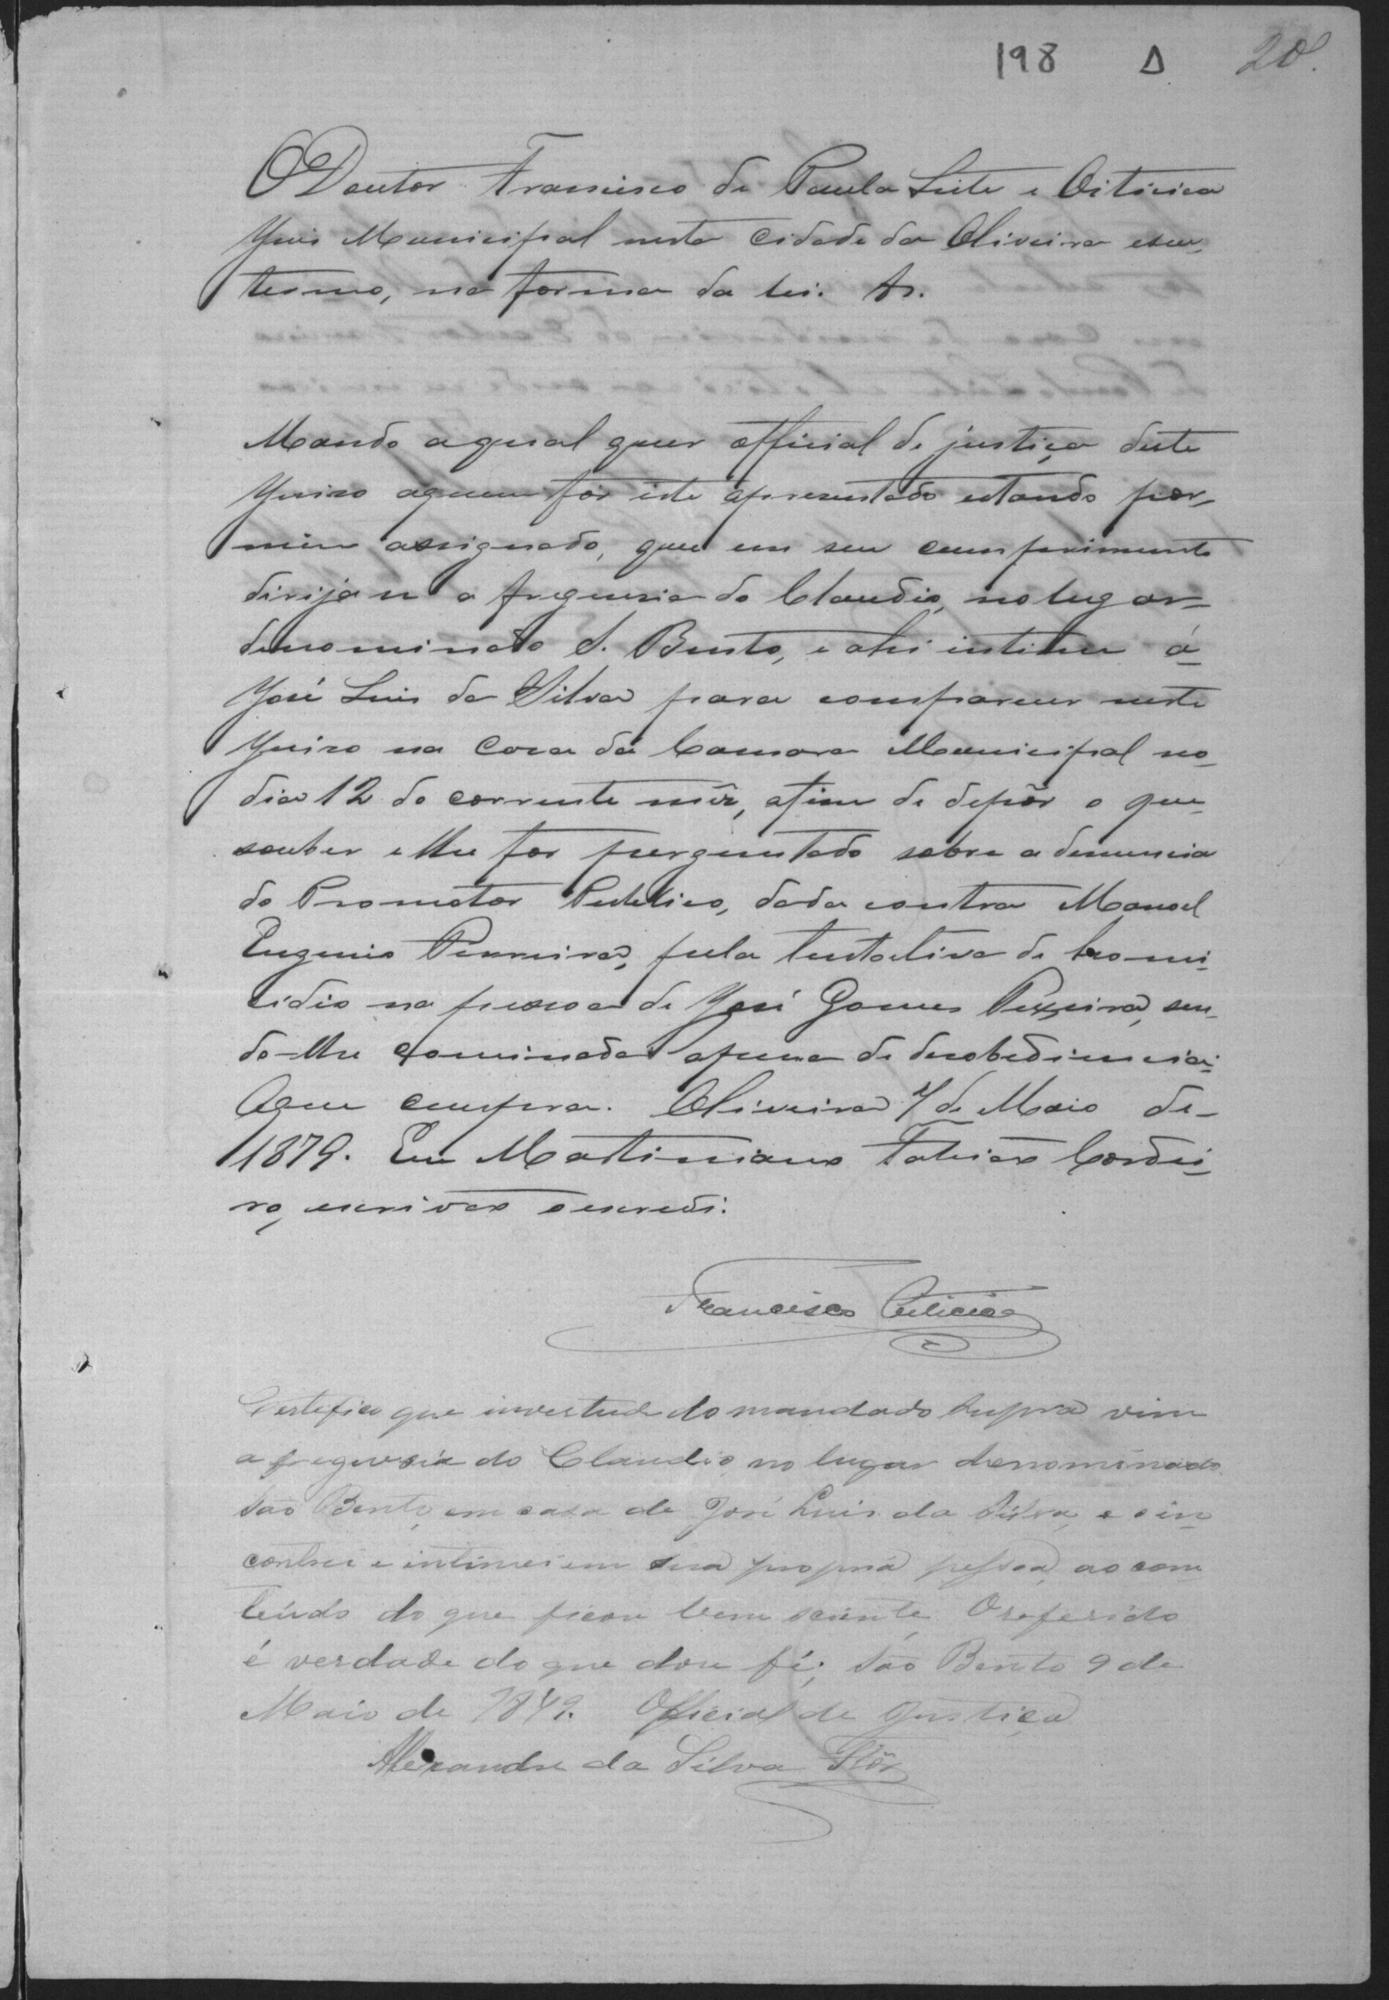 198 Δ 20.
O Doutor Francisco de Paula Leite e Oiticica
Juis Municipal nesta cidade da Oliveira e seu
termo, na forma da lei. &.
Mando aqual quer official de justiça deste
Juiso aquem fôr este apresentado estando por
mim assignado, que em seu comprimento
dirija se a freguesia do Claudio, no lugar
denominado S. Bento, e ahi intime á
José Luis da Silva para comparecer neste
Juiso na casa da Camara Municipal no
dia 12 do corrente mêz, afim de depôr o que
souber e lhe for perguntado sobre a denuncia
do Promotor Publico, dada contra Manoel
Eugenio Pereira, pela tentativa de homi-
cidio na pessoa de José Gomes, sen-
do-lhe cominada apena de desobediencia.
Oque cumpra. Oliveira 7 de Maio de
1879. Eu Martiniano Fabião Cordei-
ro, escrivão o escrevi.
Francisco Oiticica
Certifico que invertude do mandado supra vim
a freguesia do Claudio, no lugar denominado
São Bento, em casa de José Luis da Silva, e o in
contrei e intimei em sua propria pessoa, ao com
teúdo do que ficou bem sciente, O referido
é verdade do que dou fé; São Bento 9 de
Maio de 1879. Official de Justiça
Alexandre da Silva Flôr